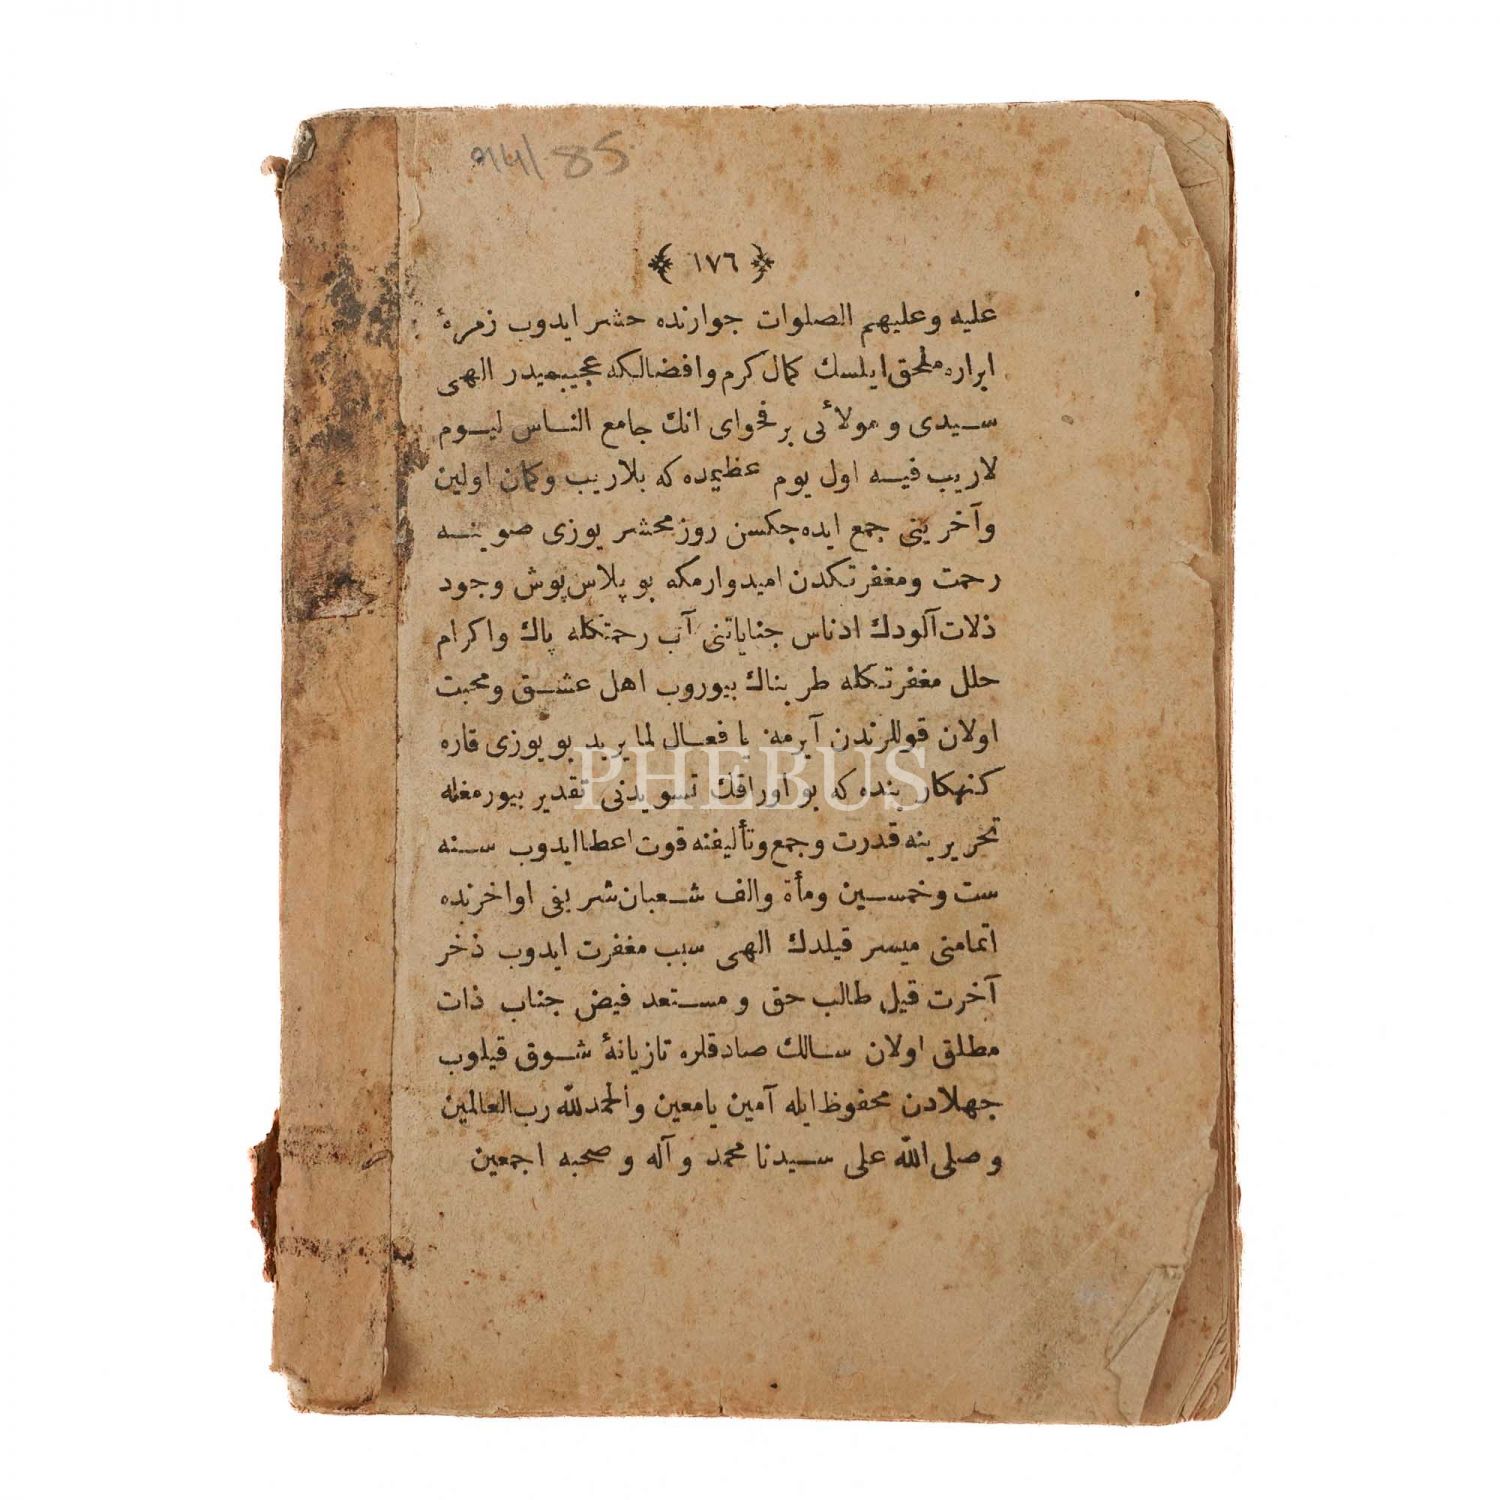 914/85
﴿ ١٧٦ ﴾
عليه وعليهم الصلوات جوارنده حشر ايدوب زمرۀ
ابراره ملحق ايلسك كمال كرم وافضالكه عجيبميدر الهى
سيدى و مولائى بر فحواى انك جامع الناس ليوم
لاريب فيه اول يوم عظيمده كه بلاريب وكمان اولين
وآخرينى جمع ايده جكسن روز محشر يوزى صوينه
رحمت ومغفرتكدن اميدوارمكه بو پلاس پوش وجود
ذلات آلودك ادناس جناياتنى آب رحمتكله پاك واكرام
حلل مغفرتكله طربناك بيوروب اهل عشق ومحبت
اولان قوللرندن آيرمه يا فعال لما يريد بو يوزى قاره
كنهكار بنده كه بو اوراقك تسويدنى تقدير بيورمغله
تحريرينه قدرت وجمع وتأليفنه قوت اعطا ايدوب سنه
ست وخمسين ومأة والف شعبان شريفى اواخرنده
اتمامنى ميسر قيلدك الهى سبب مغفرت ايدوب ذخر
آخرت قيل طالب حق و مستعد فيض جناب ذات
مطلق اولان سالك صادقلره تازيانۀ شوق قيلوب
جهلادن محفوظ ايله آمين يا معين والحمد لله رب العالمين
وصلى الله على سيدنا محمد وآله وصحبه اجمعين
PHEBUS